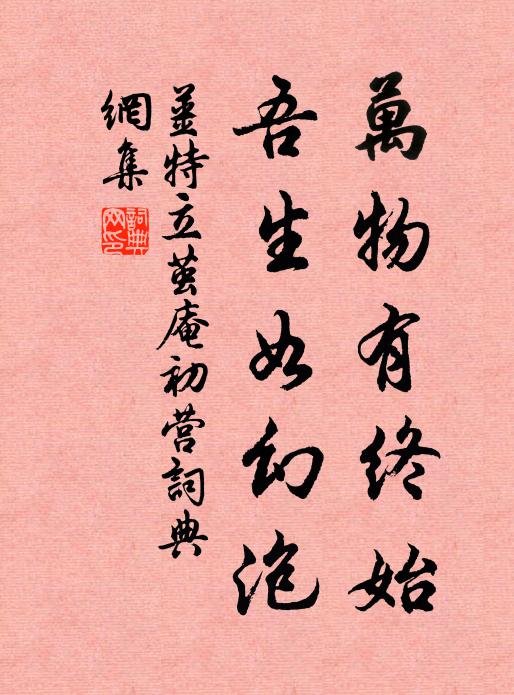 萬物有終始
吾生如幻泡
姜特立茧庵初营詞典
網集
詞典網印